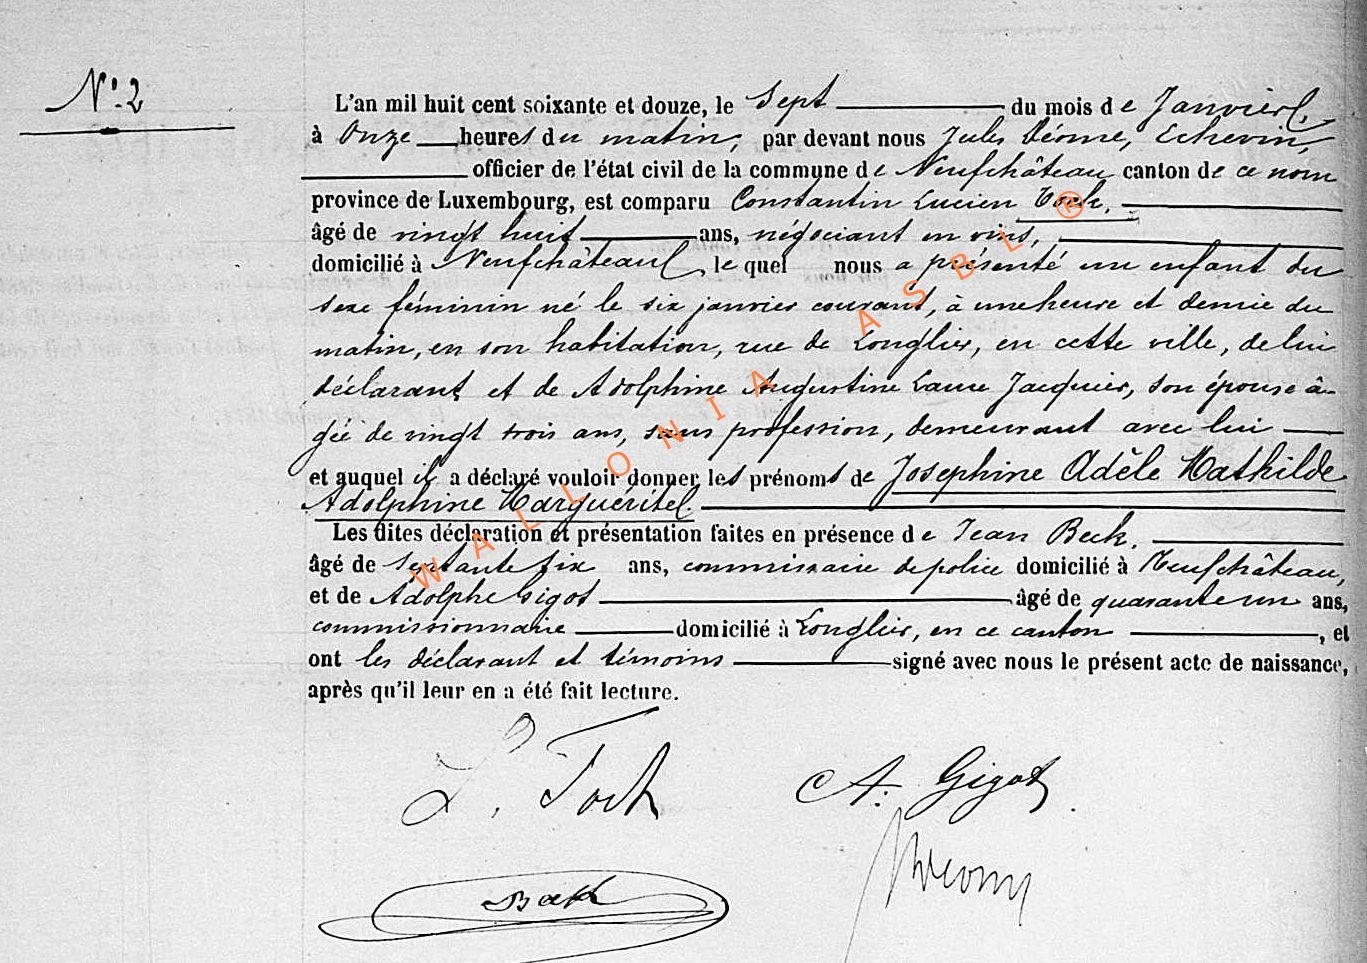 N° 2
L'an mil huit cent soixante et douze, le sept du mois de Janvier,
à onze heures du matin, par devant nous Jules Déome, Echevin,
officier de l'état civil de la commune de Neufchâteau canton de ce nom
province de Luxembourg, est comparu Constantin Lucien Toch,
âgé de vingt huit ans, négociant en vins,
domicilié à Neufchâteau, le quel nous a présenté un enfant du
sexe féminin né le six janvier courant, à une heure et demie du
matin, en son habitation, rue de Longlier, en cette ville, de lui
déclarant et de Adolphine Augustine Laure Jacquier, son épouse â-
gée de vingt trois ans, sans profession, demeurant avec lui
et auquel il a déclaré vouloir donner les prénoms de Josephine Adèle Mathilde
Adolphine Marguérite.
Les dites déclaration et présentation faites en présence de Jean Beck,
âgé de septante six ans, commissaire de police domicilié à Neufchâteau,
et de Adolphe Gigot âgé de quarante un ans,
commissionnaire domicilié à Longlier, en ce canton, et
ont les déclarant et témoins signé avec nous le présent acte de naissance,
après qu'il leur en a été fait lecture.
L. Toch A. Gigot
Beck
WALLONIA ASBL ®